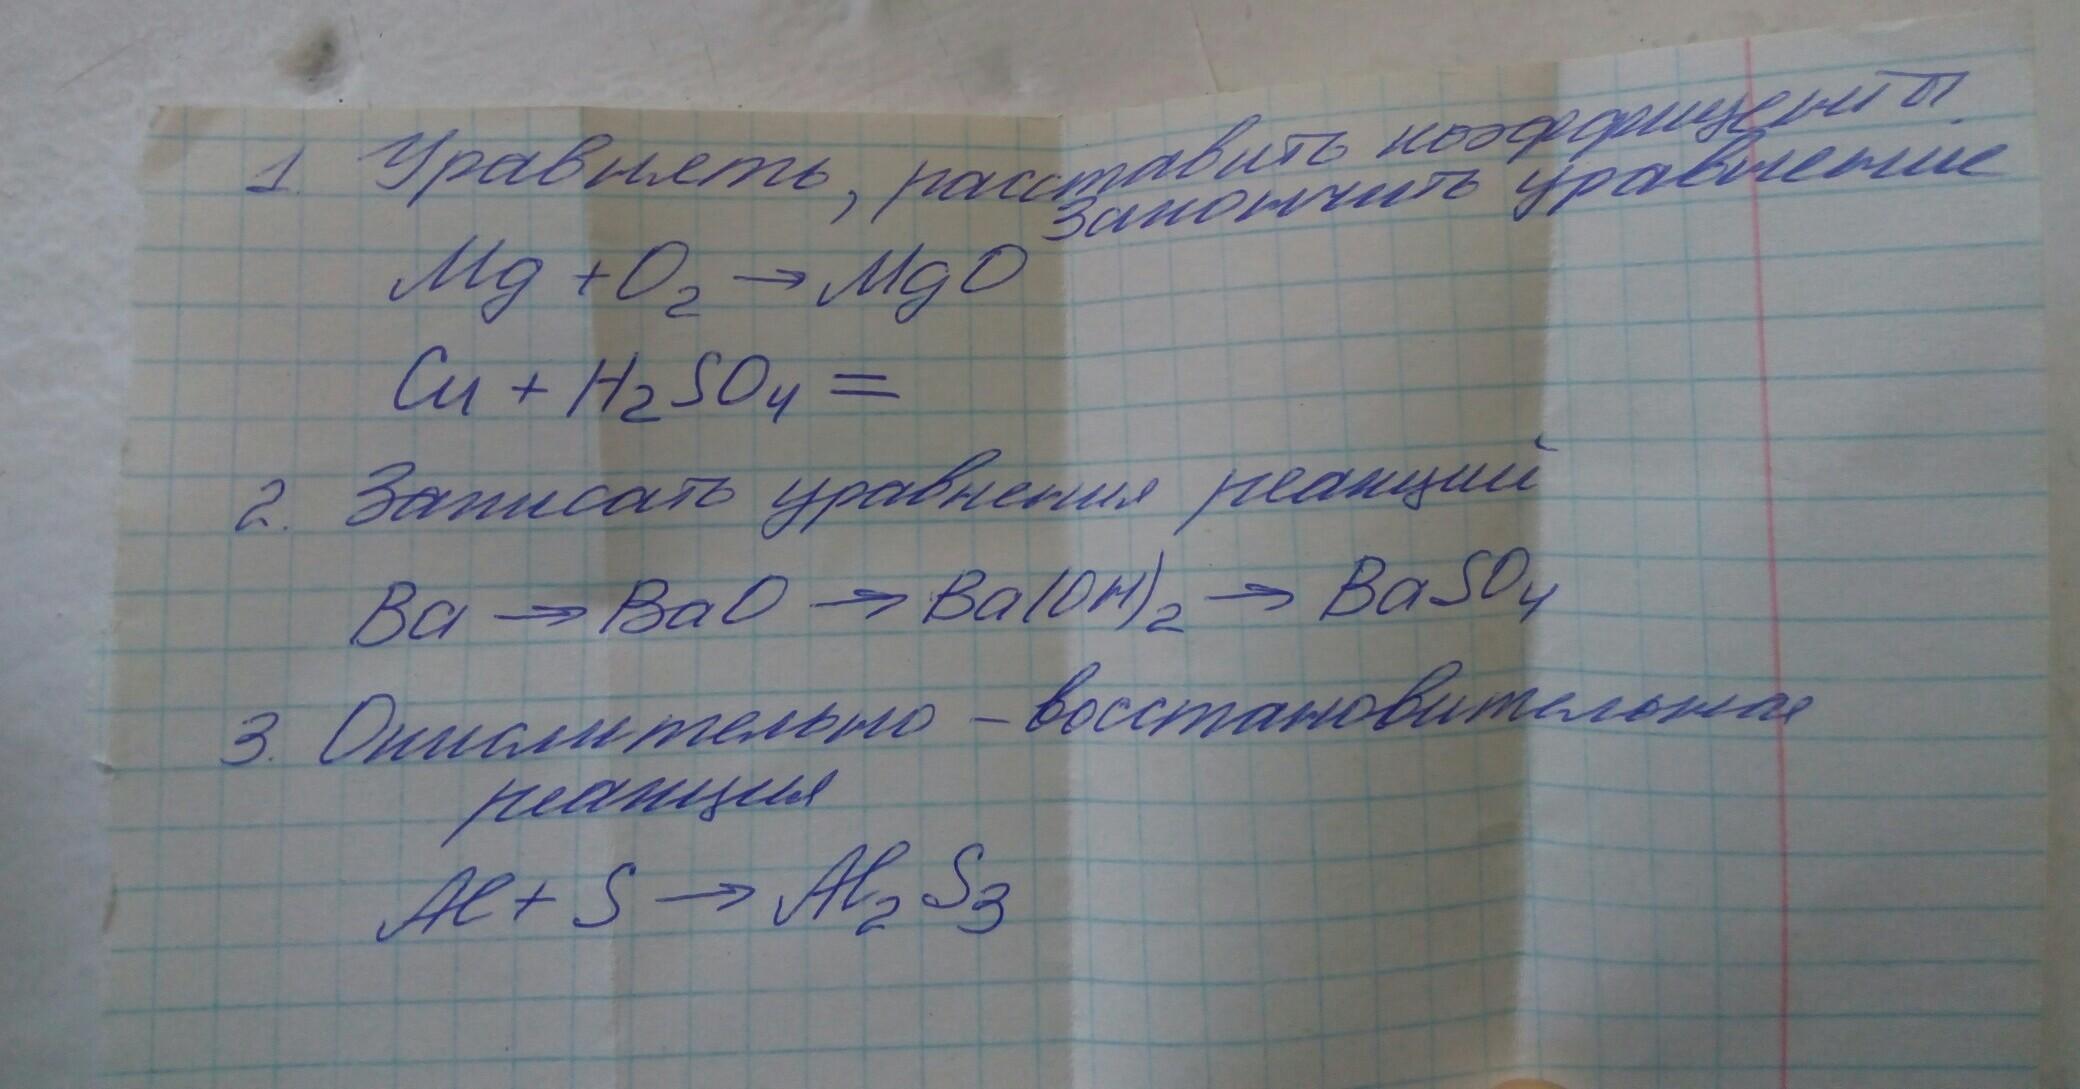 1. Уравнять, расставить коэффициенты
закончить уравнение
Mg + O₂ → MgO
Cu + H₂SO₄ =
2. Записать уравнения реакций
Ba → BaO → Ba(OH)₂ → BaSO₄
3. Окислительно – восстановительная
реакция
Al + S → Al₂S₃